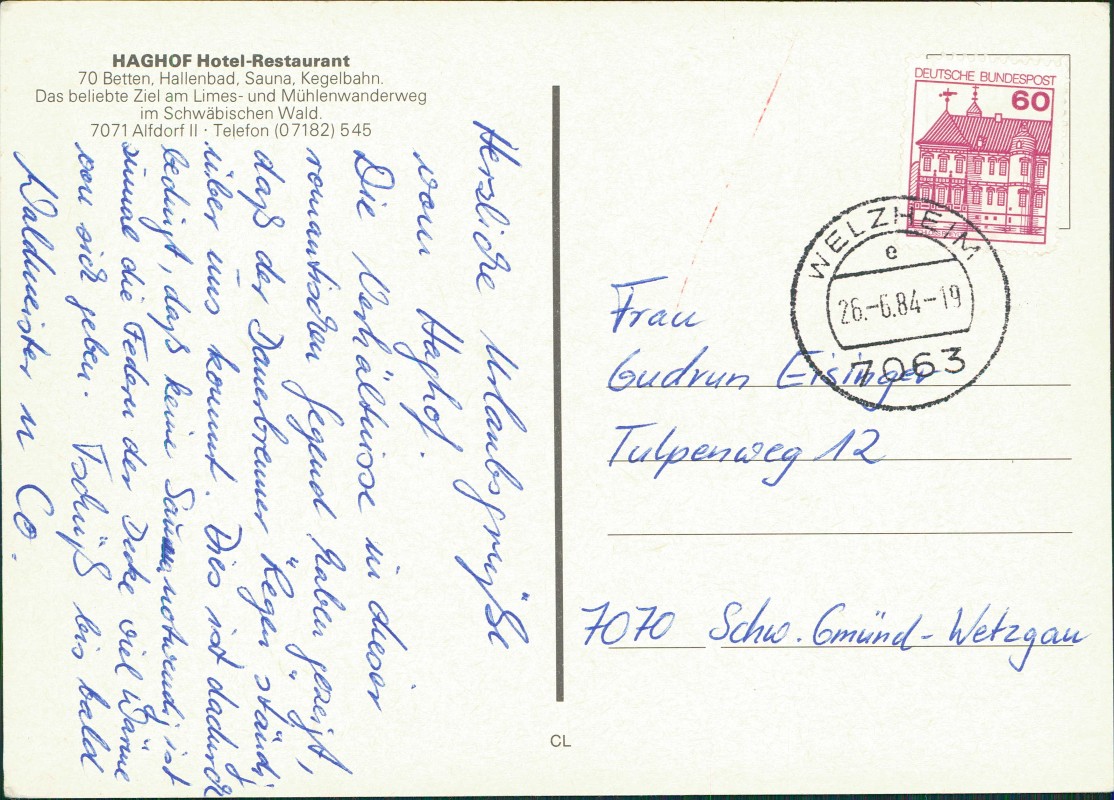 HAGHOF Hotel-Restaurant
70 Betten, Hallenbad, Sauna, Kegelbahn.
Das beliebte Ziel am Limes- und Mühlenwanderweg
im Schwäbischen Wald.
7071 Alfdorf II · Telefon (07182) 545
Herzliche Urlaubsgrüße
vom Haghof.
Die Verhältnisse in dieser
romantischen Gegend haben gezeigt,
daß der Dauerbrenner "Regen" ständig
über uns kommt. Dies ist dadurch
bedingt, daß keine Sauna notwendig ist
zumal die Federn der Decke viel Wärme
von sich geben. Tschüß bis bald
Waldmeister u Co.
DEUTSCHE BUNDESPOST
60
WELZHEIM
e
26.-6.84-19
7063
Frau
Gudrun Eisinger
Tulpenweg 12
7070 Schw. Gmünd-Wetzgau
CL